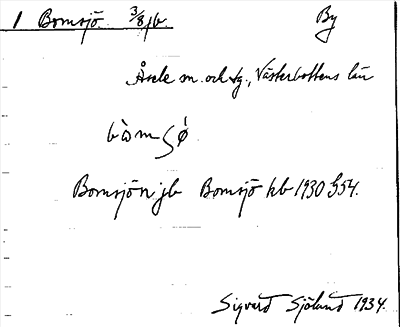 1 Bomsjö 3/8 jb By
Åsele sn. och tg., Västerbottens län
Bomsjön jb Bomsjö kb 1930 S54.
Sigvard Sjölund 1934.